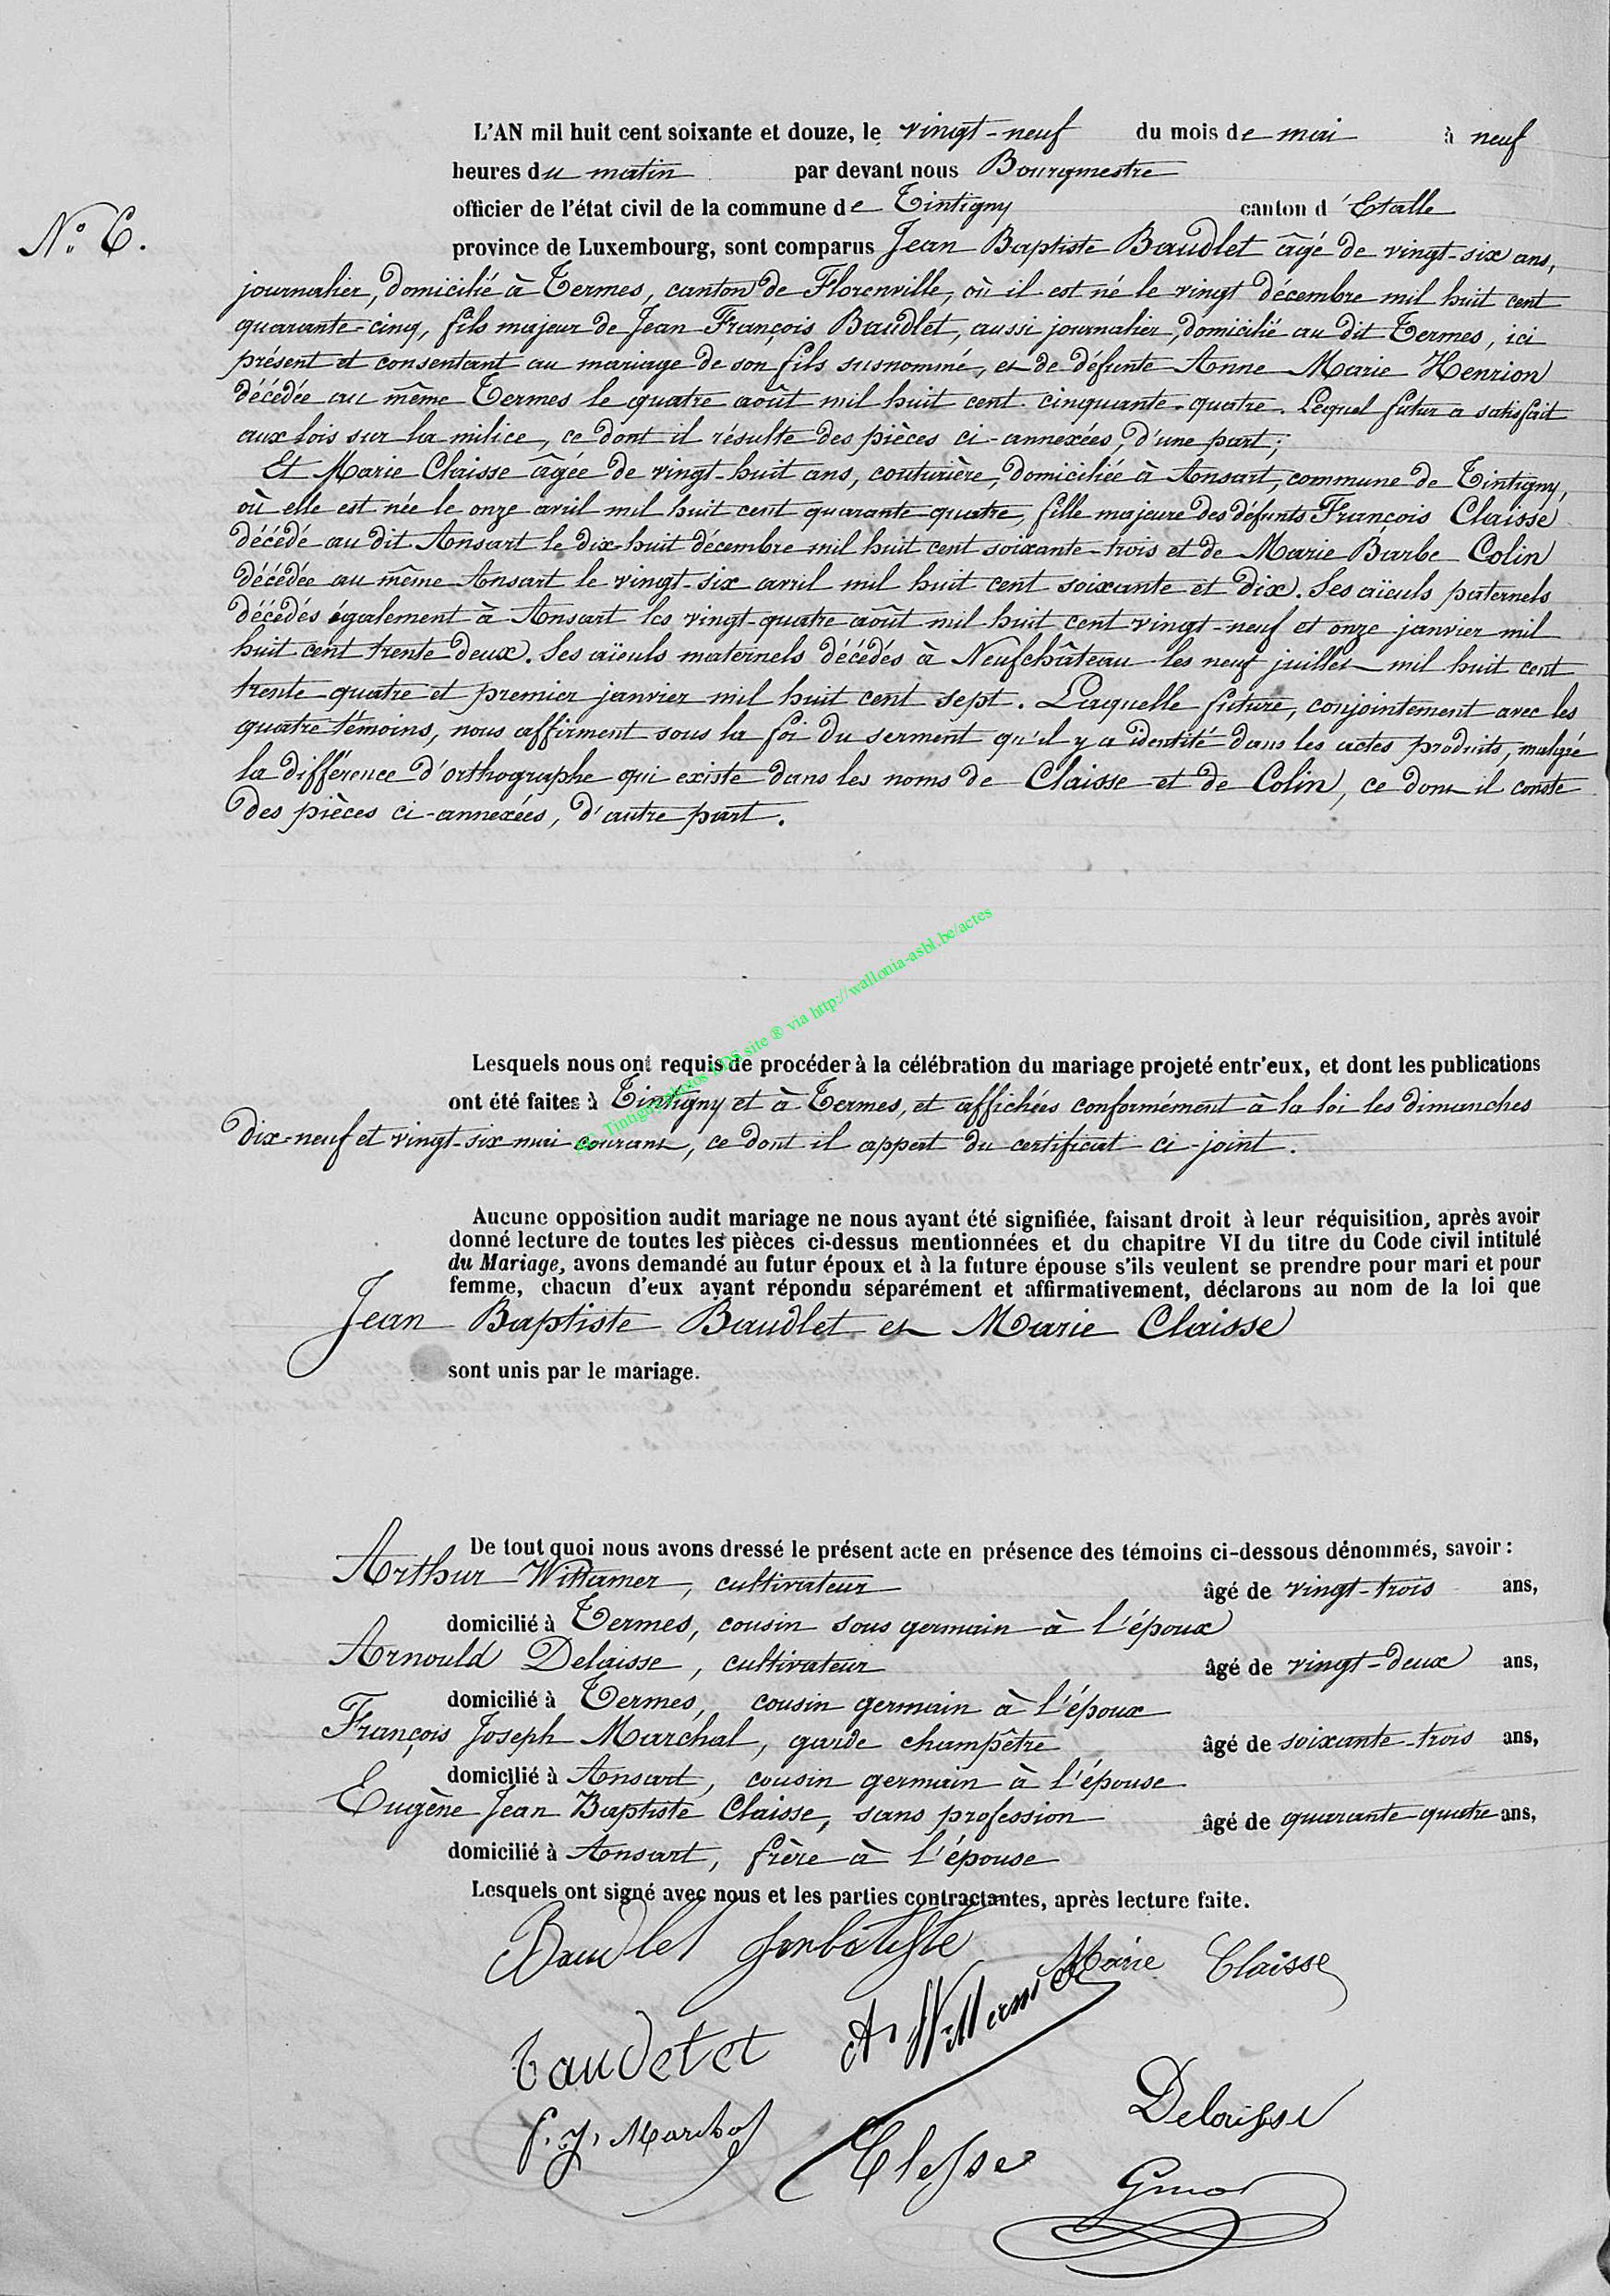 L'AN mil huit cent soixante et douze, le vingt-neuf du mois de mai à neuf
heures du matin par devant nous Bourgmestre
officier de l'état civil de la commune de Tintigny canton d'Etalle
N.° 6.
province de Luxembourg, sont comparus Jean Baptiste Baudlet âgé de vingt-six ans,
journalier, domicilié à Termes, canton de Florenville, où il est né le vingt décembre mil huit cent
quarante-cinq, fils majeur de Jean François Baudlet, aussi journalier, domicilié au dit Termes, ici
présent et consentant au mariage de son fils susnommé, et de défunte Anne Marie Henrion
décédée au même Termes le quatre août mil huit cent cinquante-quatre. Lequel futur a satisfait
aux lois sur la milice, ce dont il résulte des pièces ci-annexées, d'une part;
Et Marie Claisse âgée de vingt-huit ans, couturière, domiciliée à Ansart, commune de Tintigny,
où elle est née le onze avril mil huit cent quarante-quatre, fille majeure des défunts François Claisse
décédé au dit Ansart le dix-huit décembre mil huit cent soixante-trois et de Marie Barbe Colin
décédée au même Ansart le vingt-six avril mil huit cent soixante et dix. Ses aïeuls paternels
décédés également à Ansart les vingt-quatre août mil huit cent vingt-neuf et onze janvier mil
huit cent trente deux. Ses aïeuls maternels décédés à Neufchâteau les neuf juillet mil huit cent
trente-quatre et premier janvier mil huit cent sept. Laquelle future, conjointement avec les
quatre témoins, nous affirment sous la foi du serment qu'il y a identité dans les actes produits, malgré
la différence d'orthographe qui existe dans les noms de Claisse et de Colin, ce dont il conste
des pièces ci-annexées, d'autre part.
Tintigny photos LDS site ® via http://wallonia-asbl.be/actes
Lesquels nous ont requis de procéder à la célébration du mariage projeté entr'eux, et dont les publications
ont été faites à Tintigny et à Termes, et affichées conformément à la loi les dimanches
dix-neuf et vingt-six mai courant, ce dont il appert du certificat ci-joint.
Aucune opposition audit mariage ne nous ayant été signifiée, faisant droit à leur réquisition, après avoir
donné lecture de toutes les pièces ci-dessus mentionnées et du chapitre VI du titre du Code civil intitulé
du Mariage, avons demandé au futur époux et à la future épouse s'ils veulent se prendre pour mari et pour
femme, chacun d'eux ayant répondu séparément et affirmativement, déclarons au nom de la loi que
Jean Baptiste Baudlet et Marie Claisse
sont unis par le mariage.
De tout quoi nous avons dressé le présent acte en présence des témoins ci-dessous dénommés, savoir :
Arthur Wittamer, cultivateur âgé de vingt-trois ans,
domicilié à Termes, cousin sous germain à l'époux
Arnould Delaisse, cultivateur âgé de vingt-deux ans,
domicilié à Termes, cousin germain à l'époux
François Joseph Maréchal, garde champêtre âgé de soixante-trois ans,
domicilié à Ansart, cousin germain à l'épouse
Eugène Jean Baptiste Claisse, sans profession âgé de quarante-quatre ans,
domicilié à Ansart, frère à l'épouse
Lesquels ont signé avec nous et les parties contractantes, après lecture faite.
Baudlet Marie Claisse
baudelet A. Wittamer
Delaisse
f. j. Marchal
Clesse